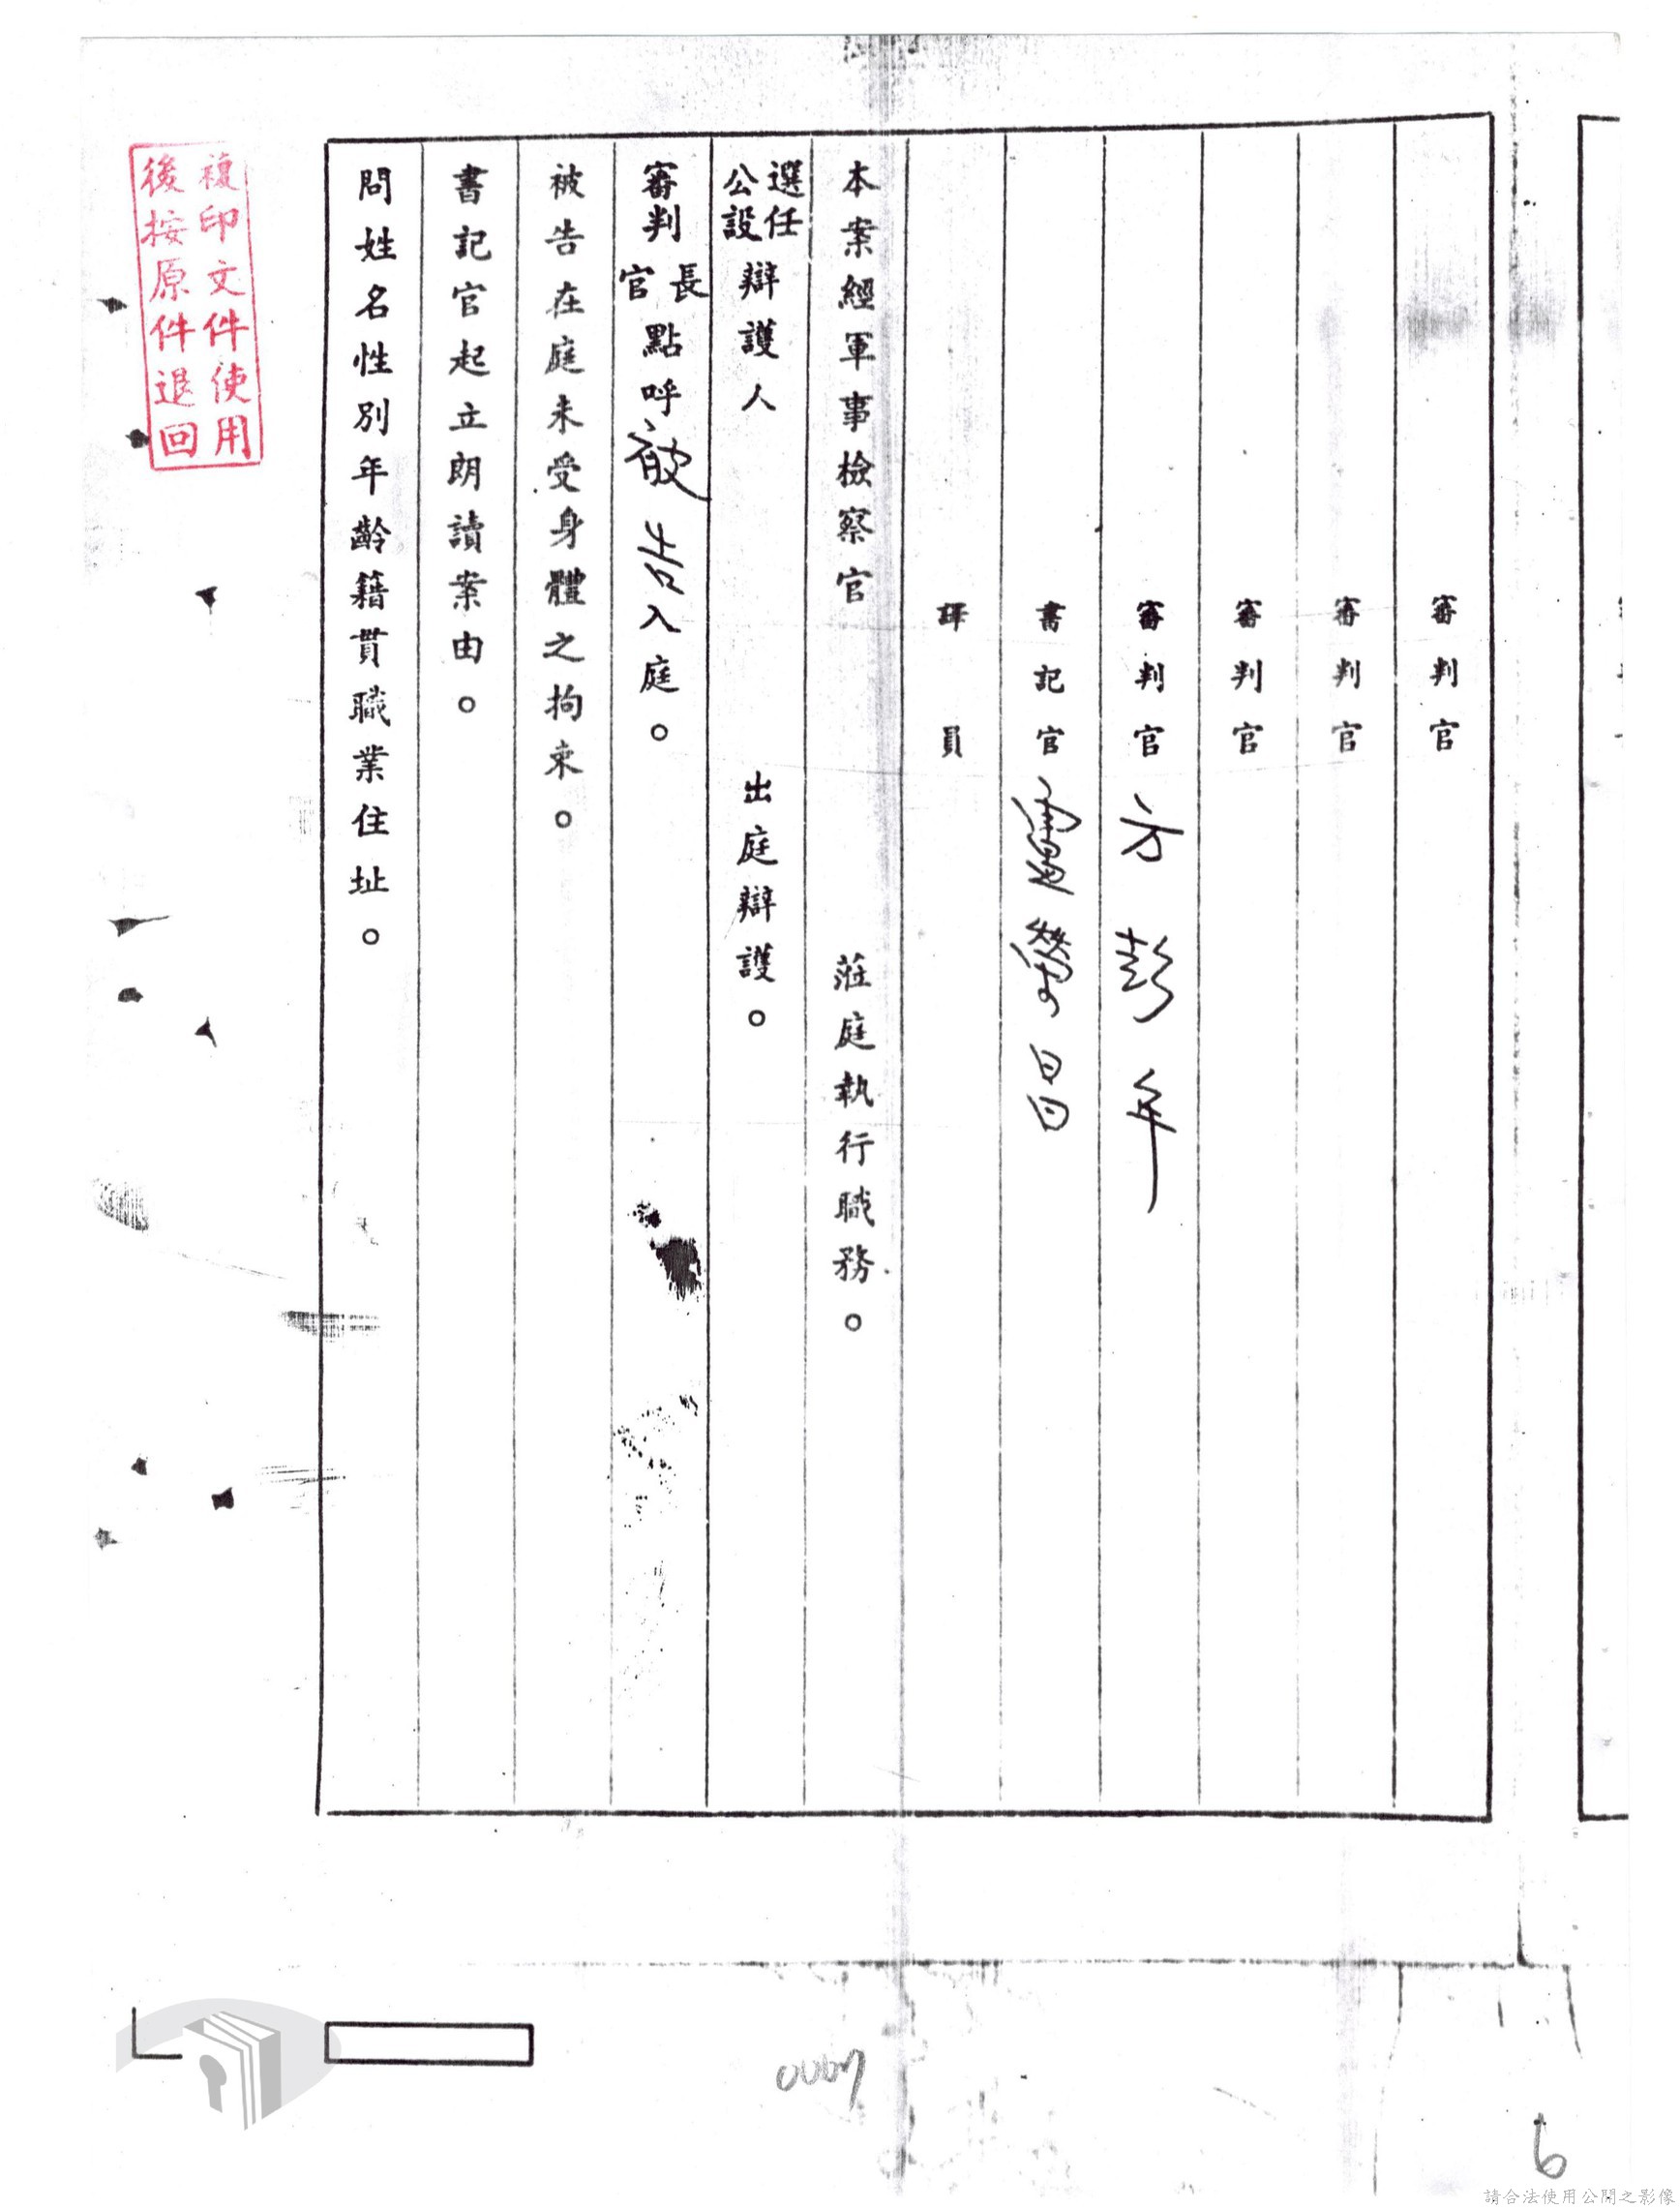 審判官
審判官
審判官
審判官 方彭年
書記官 昌
員
本案經軍事檢察官 蒞庭執行職務。
選任
公設
辯護人 出庭辯護。
審判
長
官
點呼被告入庭。
被告在庭未受身體之拘束。
書記官起立朗讀案由。
問姓名性別年齡籍貫職業住址。
複印文件使用
後按原件退回
0007
6
請合法使用公開之影像